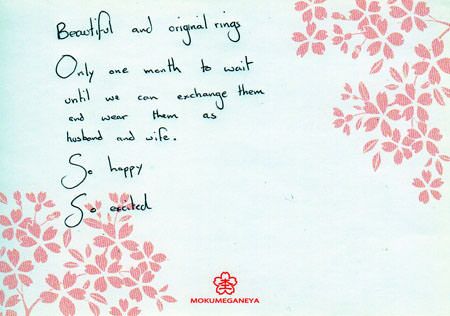 Beautiful and original rings
Only one month to wait
until we can exchange them
and wear them as
husband and wife.
So happy
So excited
MOKUMEGANEYA